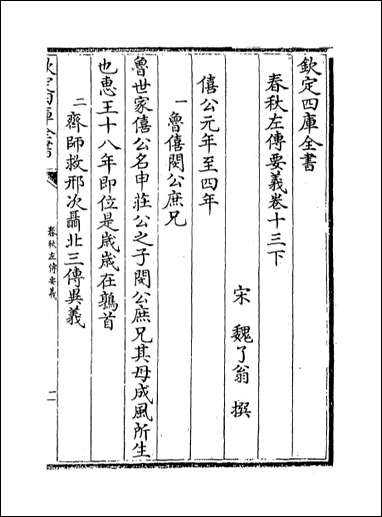 欽定四庫全書
春秋左傳要義卷十三下
宋 魏了翁 撰
僖公元年至四年
一魯僖閔公庶兄
魯世家僖公名申莊公之子閔公庶兄其母成風所生
也惠王十八年即位是歲歲在鶉首
二齊師救邢次聶北三傳異義
欽定四庫全書
春秋左傳要義
一